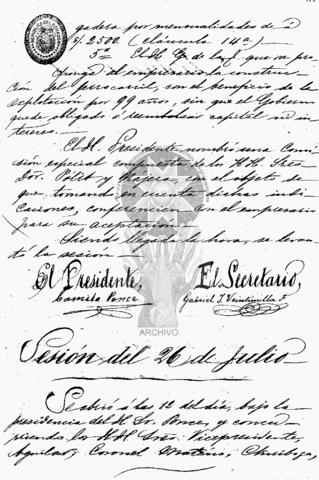 gadera por mensualidades de á
s/. 2500. (cláusula 14ª)
5ª El H. Sr. de la J. que se pro-
ponga al empresario la construc-
ción del ferrocarril, con el beneficio de la
esplotación por 99 años, sin que el Gobierno
quede obligado á reembolsar capital ni in-
tereses.
El H. Presidente nombró una Comi-
sión especial compuesta de los H.H. Sres
Dor. Pólit y Najera, con el objeto de
que, tomando en cuenta dichas indi-
caciones, conferencien con el empresario
para su aceptación.
Siendo llegada la hora, se levan-
tó la sesión.
El Presidente, El Secretario,
Camilo Ponce Gabriel I. Veintimilla
ARCHIVO
Sesión del 26 de Julio
Se abrió á las 12 del día, bajo la
presidencia del H. Sr. Ponce, y concu-
rriendo los H.H. Sres. Vicepresidente,
Aguilar, Coronel Mateus, Chiriboga,